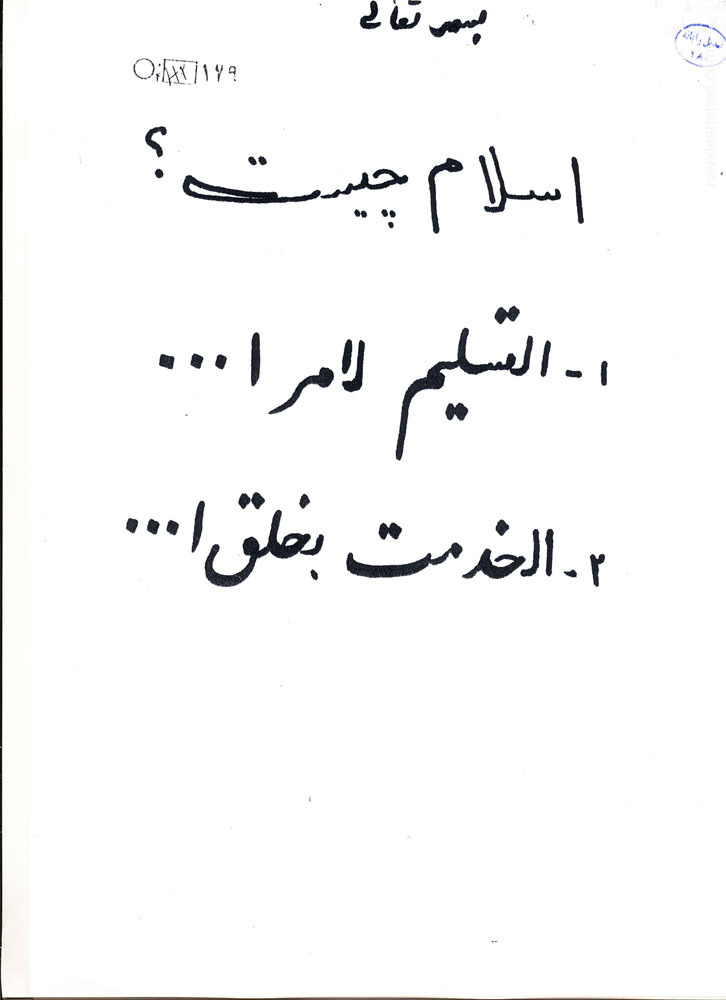 بسمه تعالی
۱۷۹
اسلام چیست ؟
۱- التسلیم لامر ا...
۲- الخدمت بخلق ا...
navideshahed.com